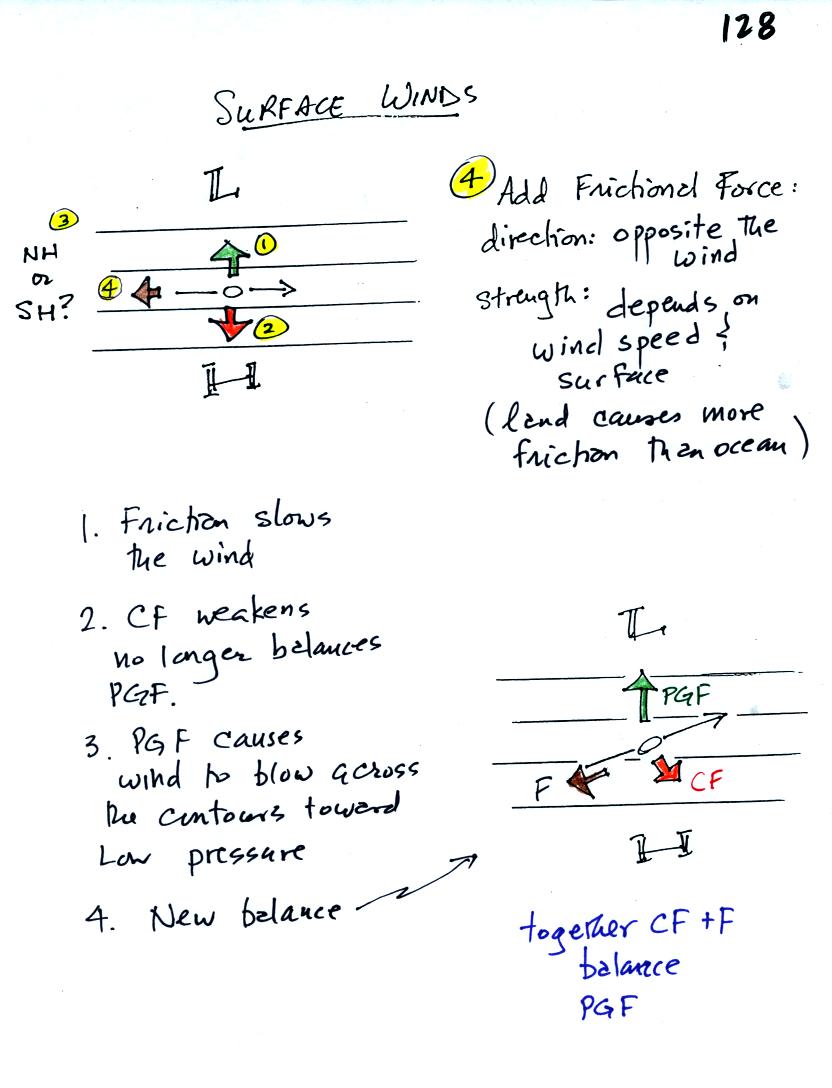 128
SURFACE WINDS
L
3
NH
or
SH?
1
4
2
H
4 Add Frictional Force:
direction: opposite the
wind
strength: depends on
wind speed &
surface
(land causes more
friction than ocean)
1. Friction slows
the wind
2. CF weakens
no longer balances
PGF.
3. PGF causes
wind to blow across
the contours toward
Low pressure
4. New balance
L
PGF
F
CF
H
together CF + F
balance
PGF